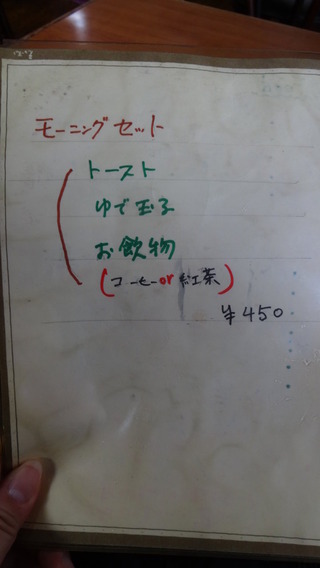 モーニングセット
トースト
ゆで玉子
お飲物
(コーヒーor紅茶)
¥450